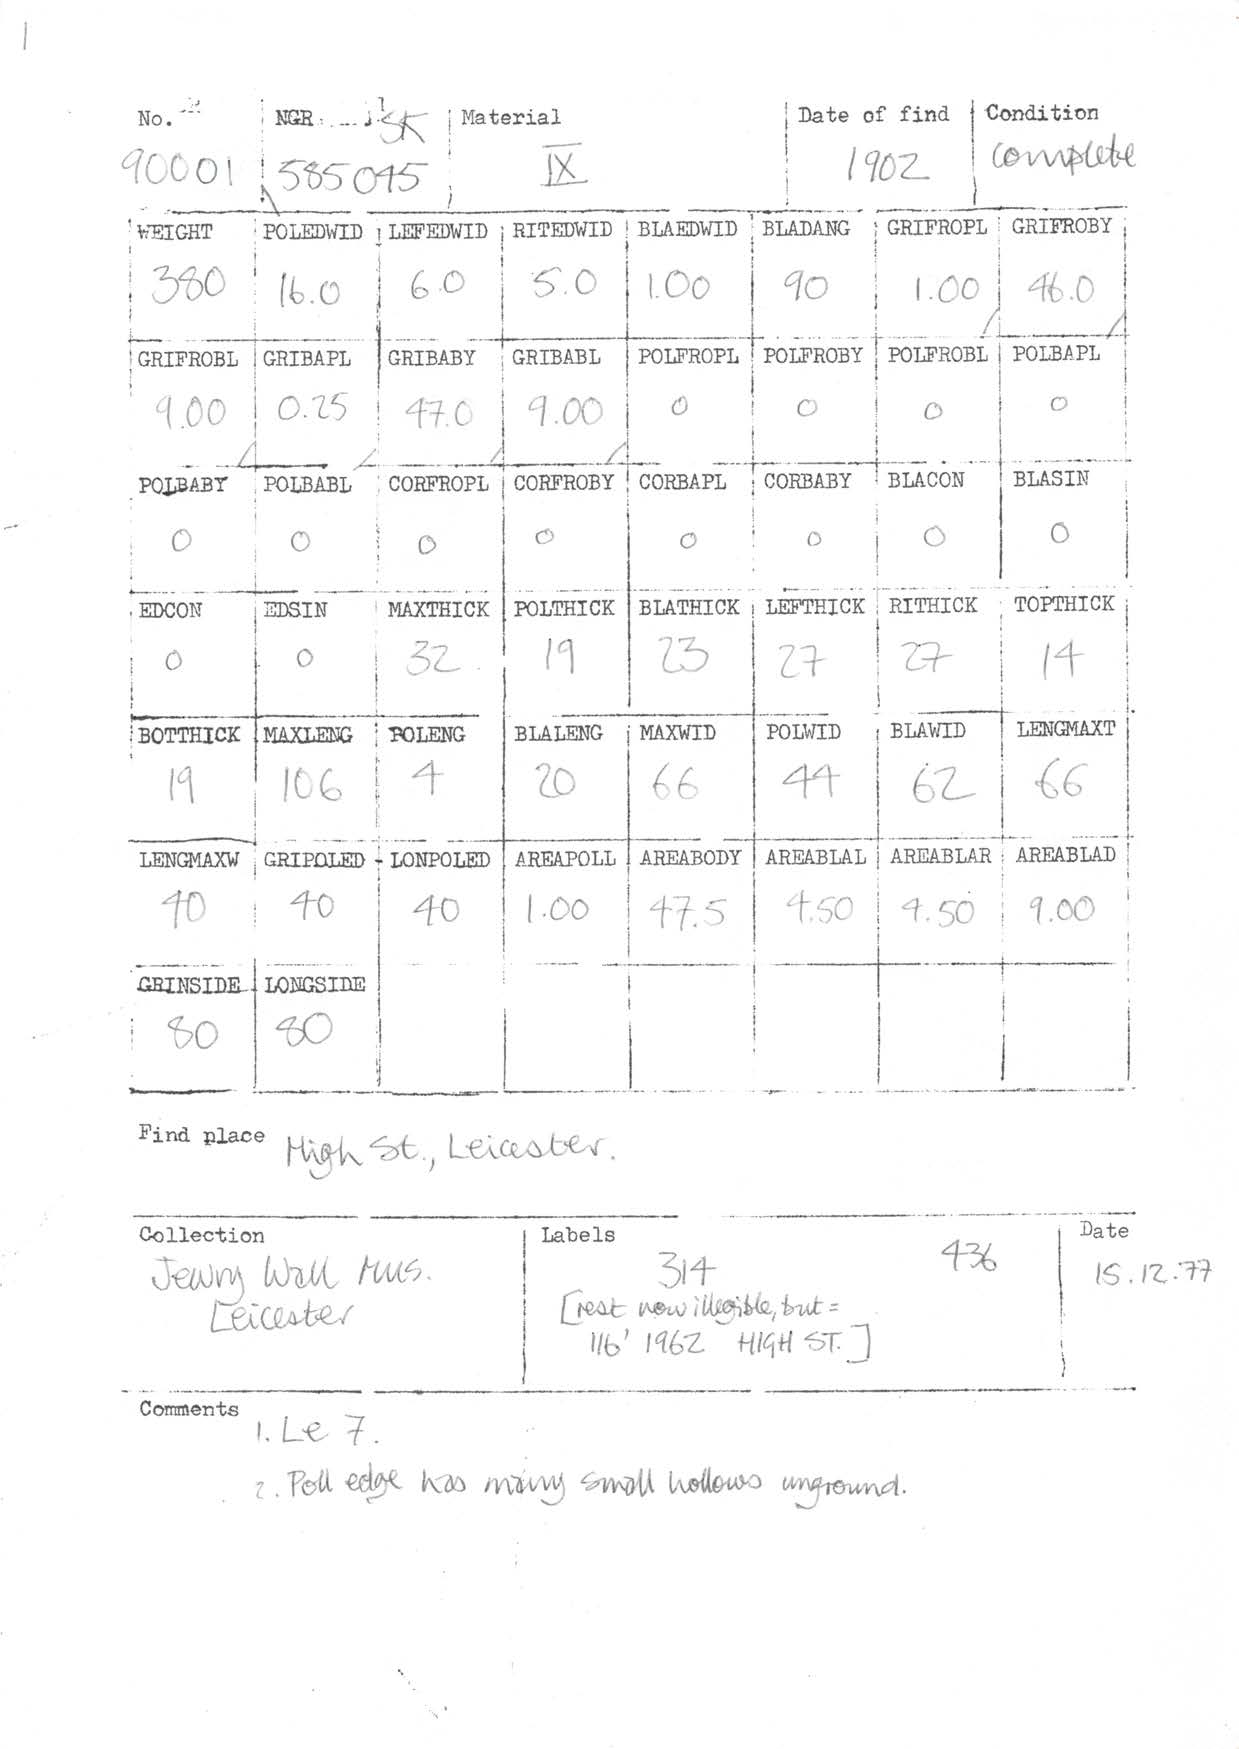 1
No. NGR SK Material Date of find Condition
90001 585045 IX 1902 complete
WEIGHT POLEDWID LEFEDWID RITEDWID BLAEDWID BLADANG GRIFROPL GRIFROBY
380 16.0 6.0 5.0 1.00 90 1.00 46.0
GRIFROBL GRIBAPL GRIBABY GRIBABL POLFROPL POLFROBY POLFROBL POLBAPL
9.00 0.25 47.0 9.00 0 0 0 0
POLBABY POLBABL CORFROPL CORFROBY CORBAPL CORBABY BLACON BLASIN
0 0 0 0 0 0 0 0
EDCON EDSIN MAXTHICK POLTHICK BLATHICK LEFTHICK RITHICK TOPTHICK
0 0 32 19 23 27 27 14
BOTTHICK MAXLENG POLENG BLALENG MAXWID POLWID BLAWID LENGMAXT
19 106 4 20 66 44 62 66
LENGMAXW GRIPOLED LONPOLED AREAPOLL AREABODY AREABLAL AREABLAR AREABLAD
40 40 40 1.00 47.5 4.50 4.50 9.00
GRINSIDE LONGSIDE
80 80
Find place High St., Leicester.
Collection Labels Date
Jewry Wall Mus. 314 436 15.12.77
Leicester [rest now illegible, but =
116' 1962 HIGH ST.]
Comments
1. Le 7.
2. Poll edge has many small hollows unground.